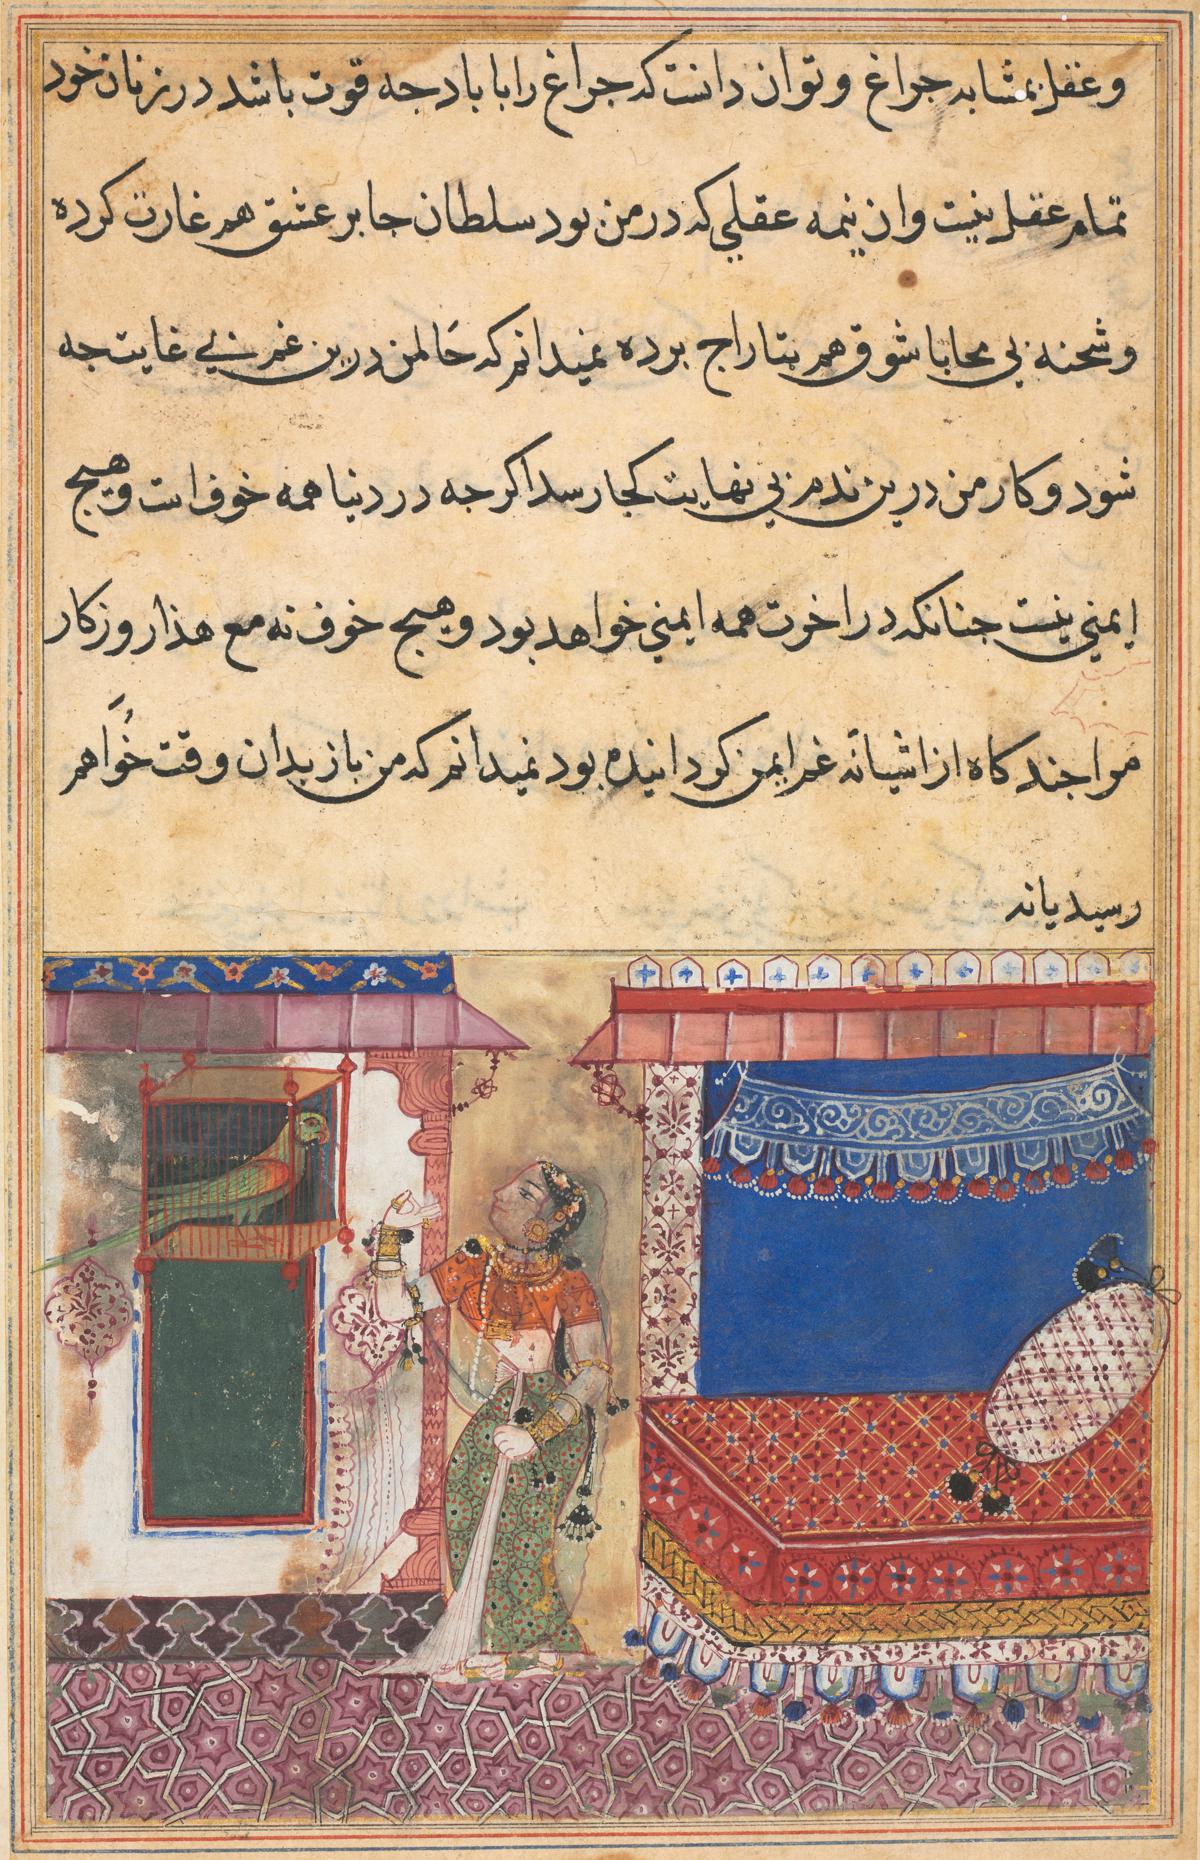 و عقل بمشابه جراغ و توان دانست که جراغ را با باد جه قوت باشد در زنان خود
تمام عقل نیست و ان نیمه عقلی که در من بود سلطان جابر عشق هم غارت کرده
و شحنه بی محابا شوق هم بتاراج برده نمیدانم که حَال من درین غم بی غایت جه
شود و کار من درین ندم بی نهایت کجا رسد اکر جه در دنیا همه خوف است و هیج
ایمنی نیست جنانکه در اخرت همه ایمنی خواهد بود و هیج خوف نه مع هذا روزکار
مرا جند کاه از اشیانَه غم ایمن کردانیده بود نمیدانم که من باز بدان وقت خُواهم
رسید یا نه